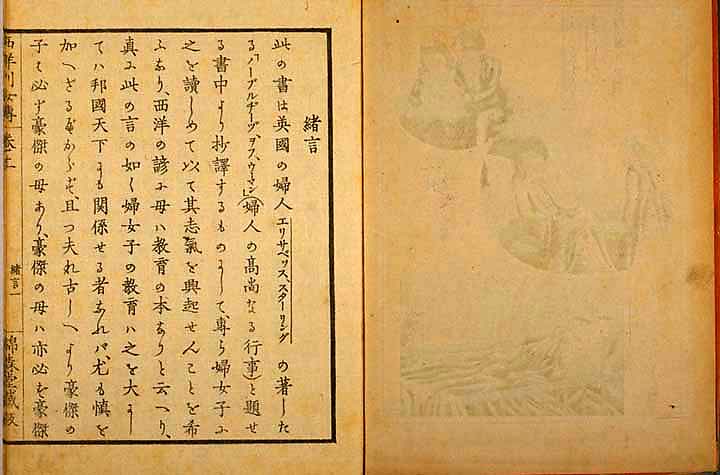 緒言
此の書は英國の婦人エリサベッス、スターリングの著した
る「ノーブルヂーヅ、ヲフ、ウーマン」(婦人の高尚なる行事)と題せ
る書中より抄譯するものにして、專ら婦女子に
之を讀しめて以て其志氣を興起せんことを希
ふなり、西洋の諺に母ハ教育の本なりと云へり、
真に此の言の如く婦女子の教育ハ之を大にし
てハ邦國天下にも関係せる者なれバ、尤も慎を
加へざるべからず、且つ夫れ古しへより豪傑の
子は必ず豪傑の母あり、豪傑の母ハ亦必ず豪傑
西洋列女傳
緒言一
錦森堂藏板